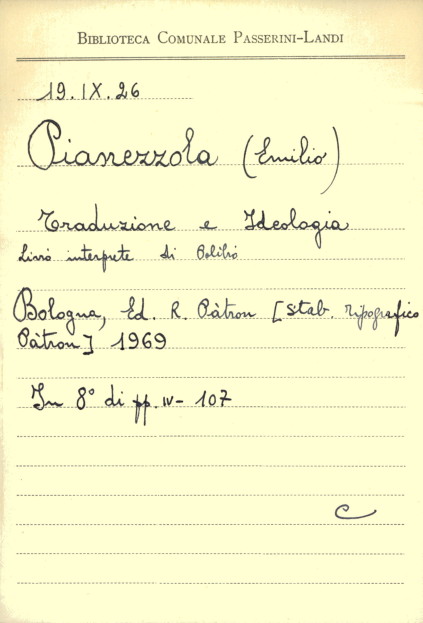 BIBLIOTECA COMUNALE PASSERINI-LANDI
19.IX.26
Pianezzola (Emilio)
Traduzione e Ideologia
Livio interprete di Polibio
Bologna, Ed. R. Pàtron [Stab. Tipografico
Pàtron] 1969
In 8° di pp. IV- 107
C